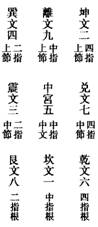 坤文二四指上節
離文九中指上節
巽文四二指上節
兌文七四指中節
中宮五中指中文
震文三二指中節
乾文六四指根
坎文一中指根
艮文八二指根